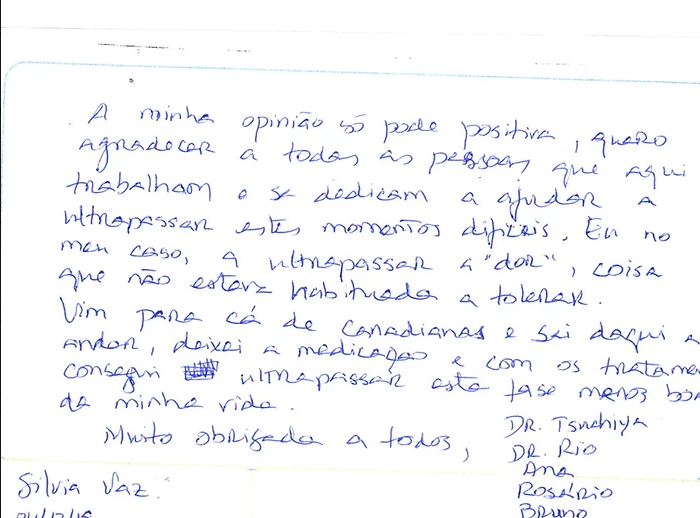 A minha opinião só pode positiva, quero
agradecer a todas as pessoas que aqui
trabalham e se dedicam a ajudar a
ultrapassar estes momentos difíceis. Eu no
meu caso, a ultrapassar a "dor", coisa
que não estava habituada a tolerar.
Vim para cá de canadianas e sei daqui a
andar, deixei a medicação e com os tratame
consegui ultrapassar esta fase menos boa
da minha vida.
Muito obrigada a todos,
DR. Tsuchiya
DR. Rio
Ana
ROSÁRIO
BRUNO
Silvia Vaz.